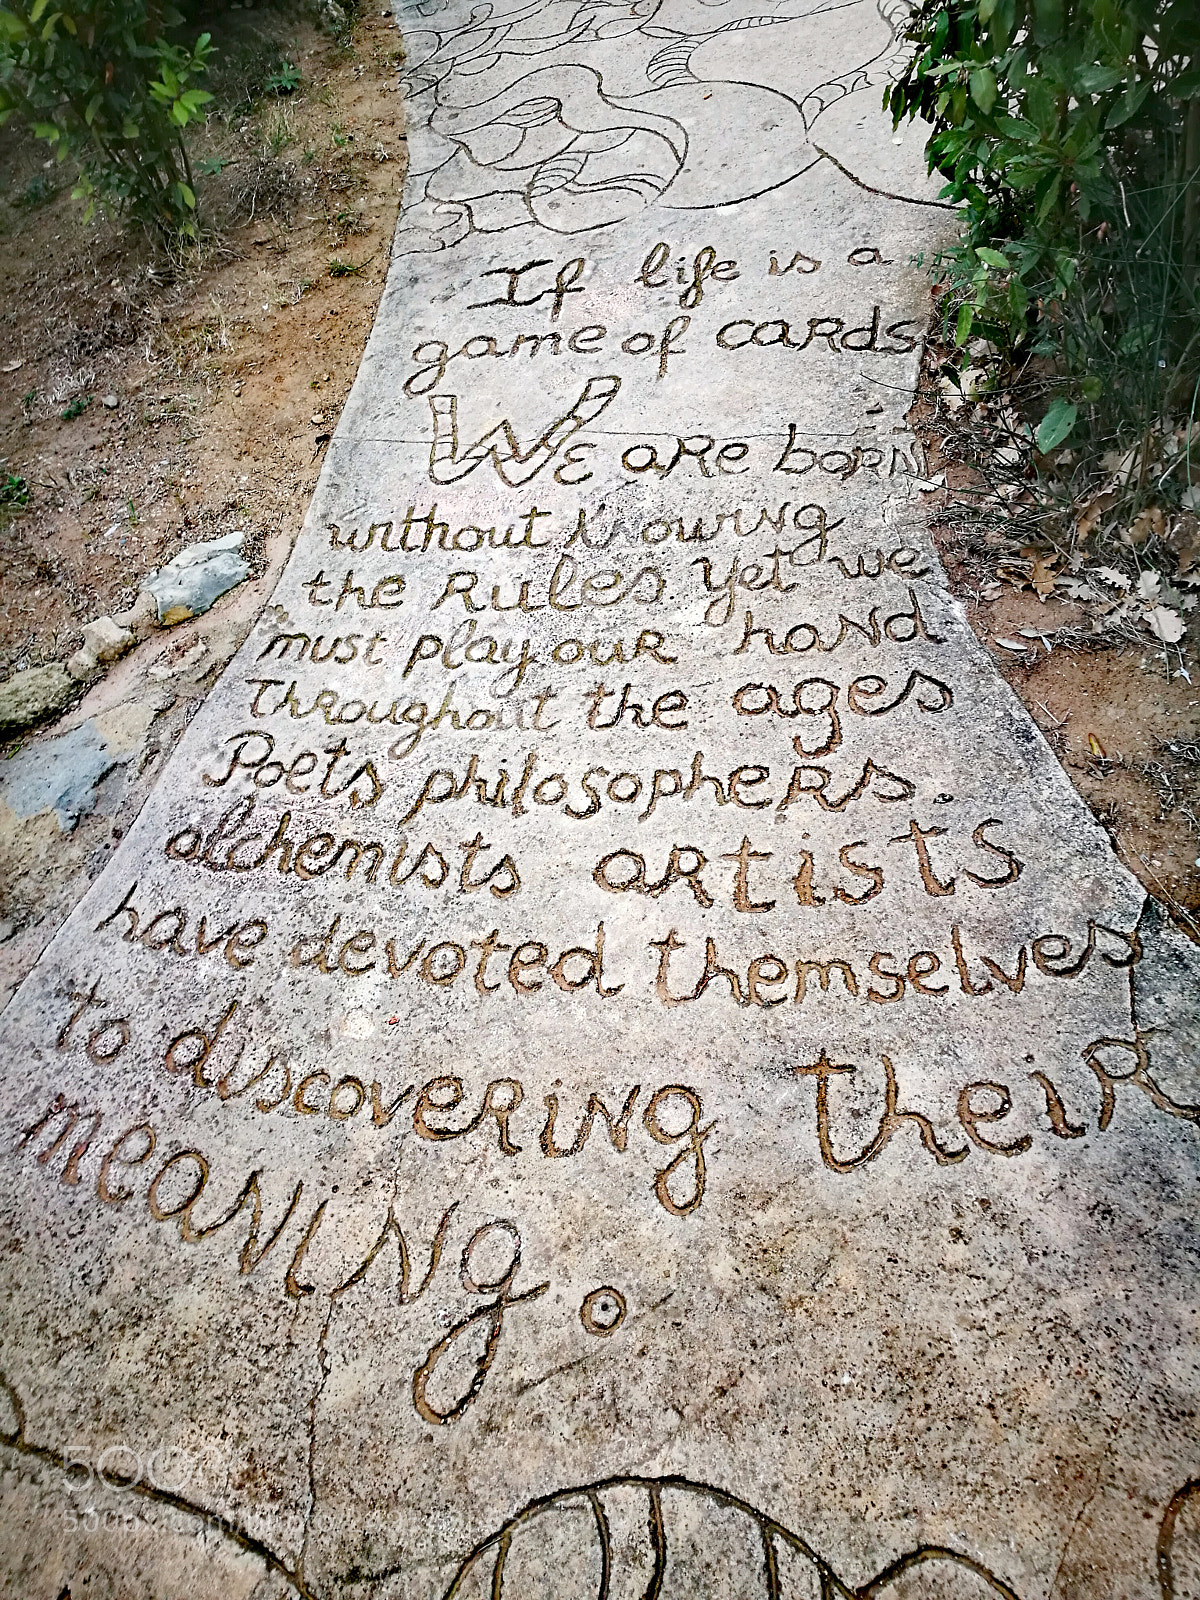 If life is a
game of cards
We are born
without knowing
the Rules yet we
must play our hand
Throughout the ages
Poets philosophers.
alchemists artists
have devoted themselves
to discovering their
meaning.
500px